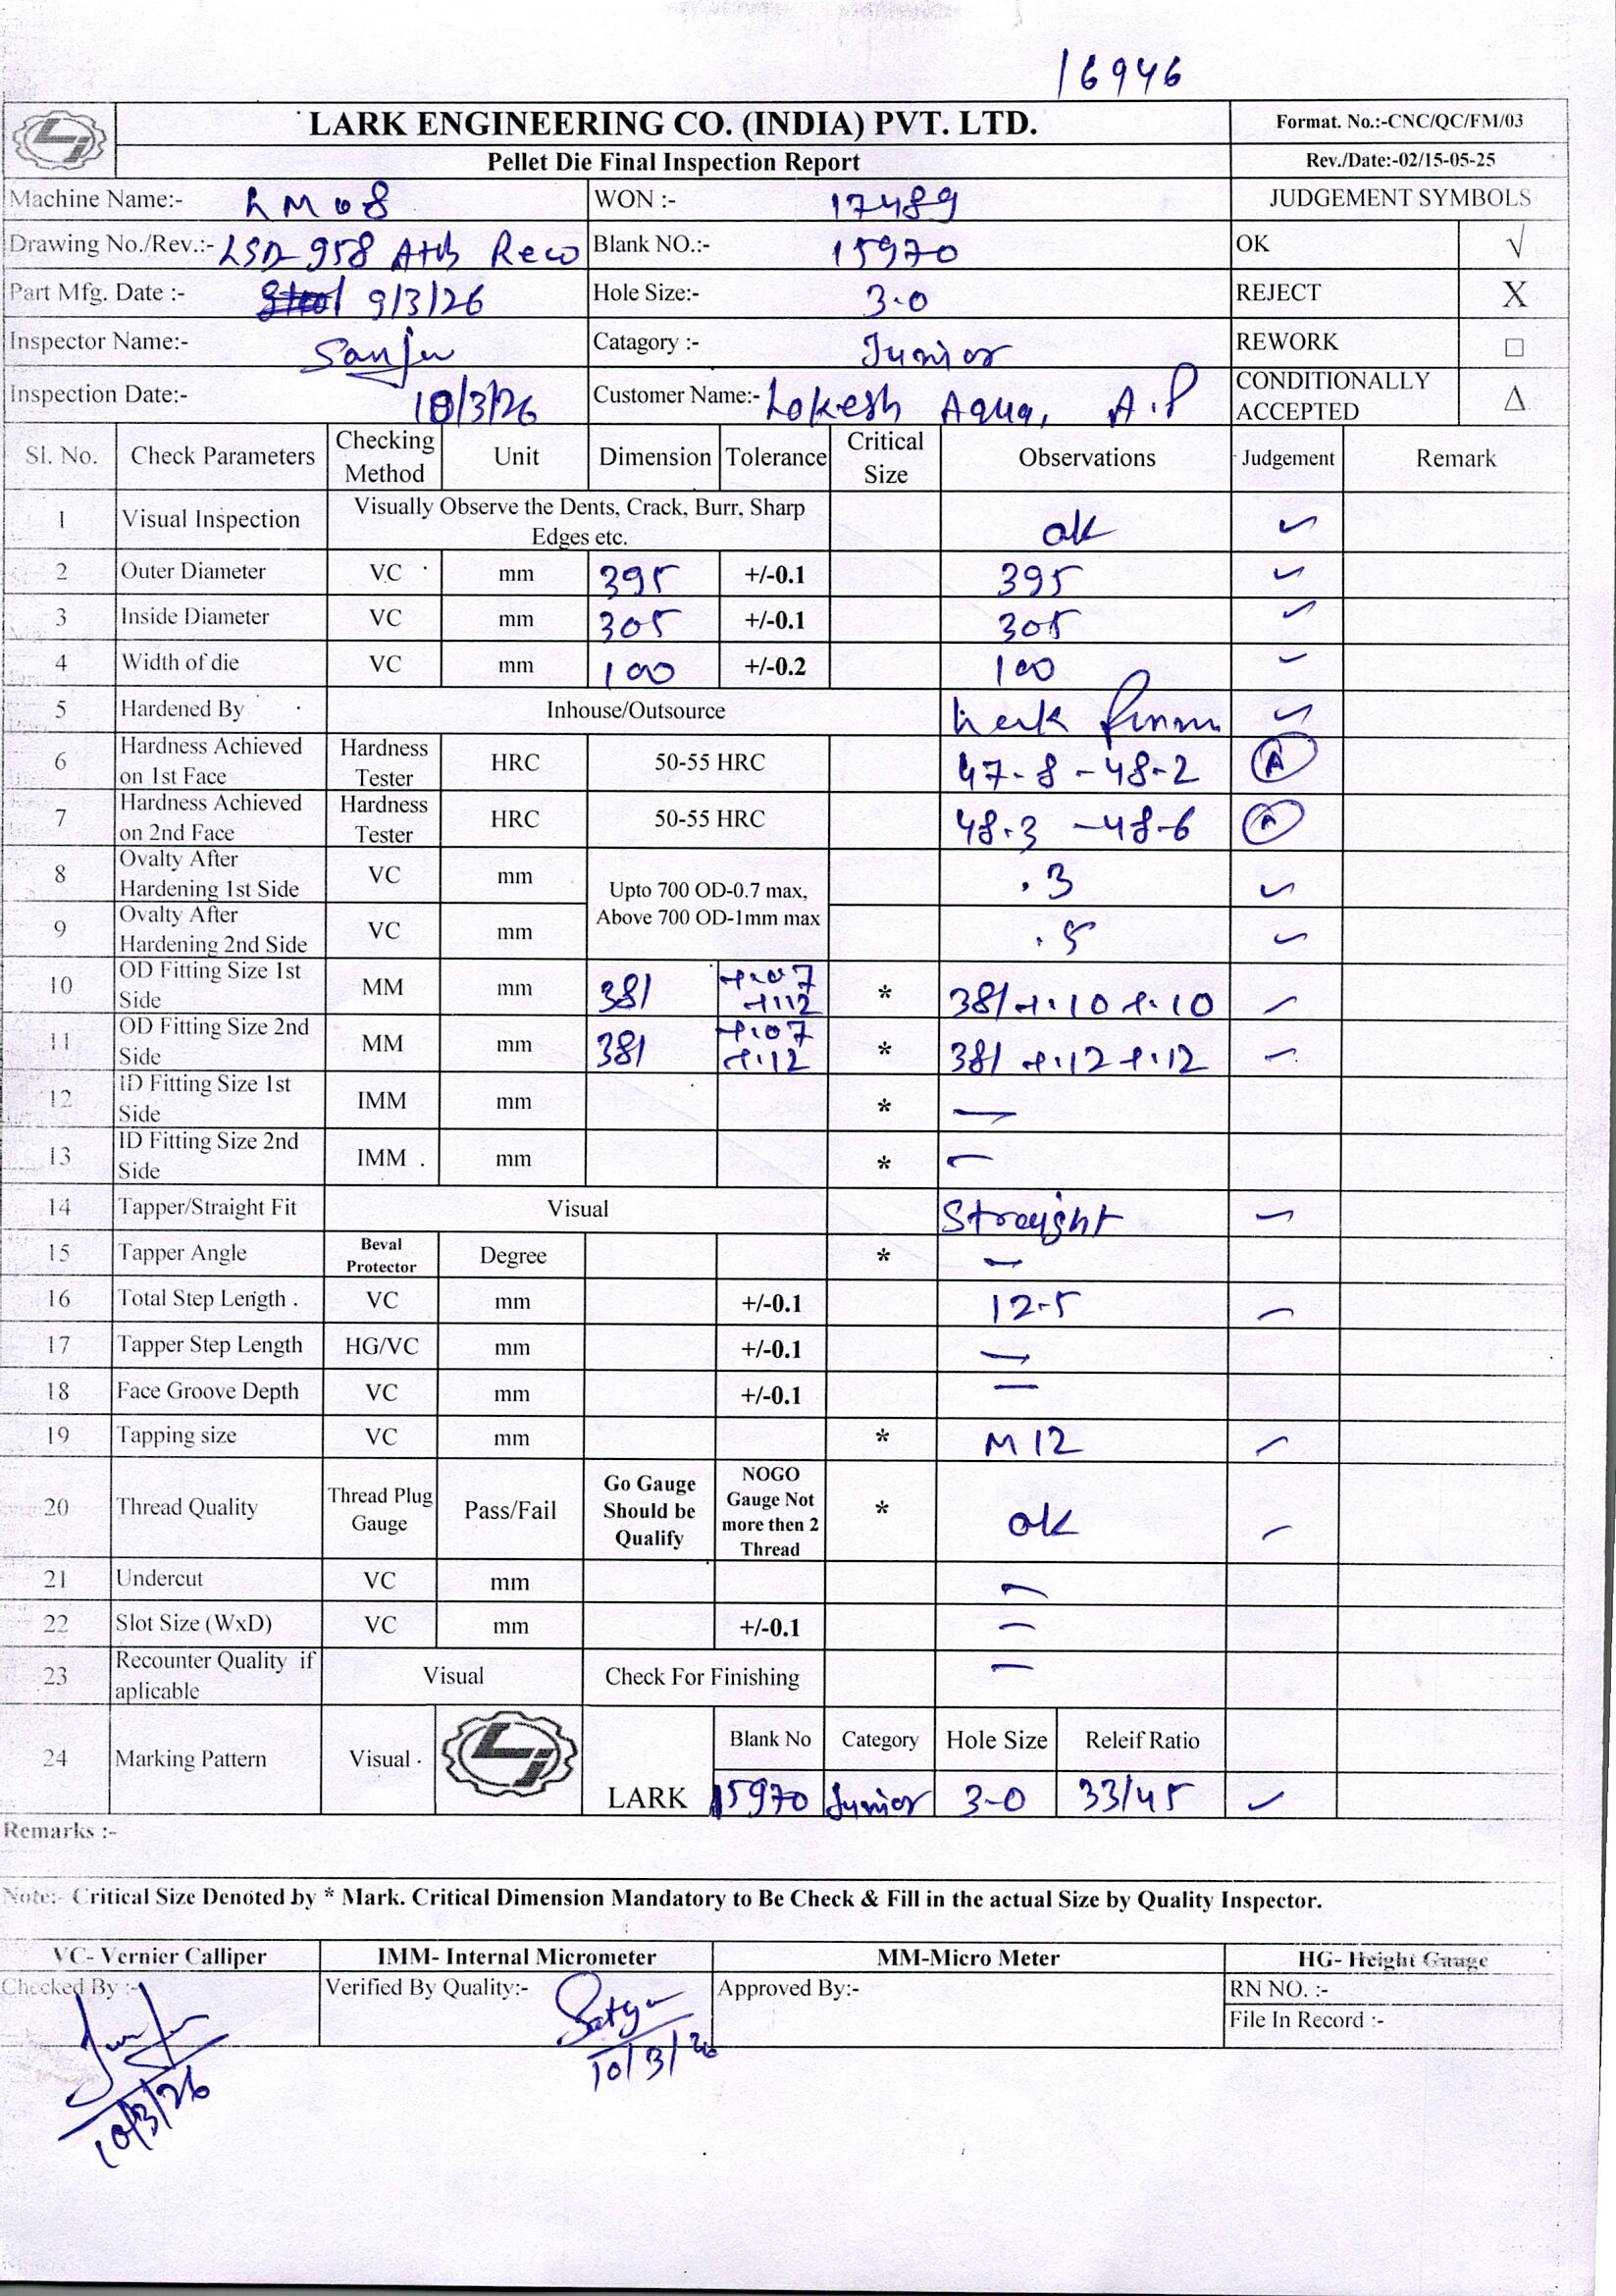 16946
LARK ENGINEERING CO. (INDIA) PVT. LTD.
Format. No.:-CNC/QC/FM/03
Pellet Die Final Inspection Report
Rev./Date:-02/15-05-25
Machine Name:- LM08 WON :- 17489 JUDGEMENT SYMBOLS
Drawing No./Rev.:- LSD-958 Blank NO.:- 15970 OK √
Part Mfg. Date :- 9/3/26 Hole Size:- 3.0 REJECT X
Inspector Name:- Sanju Catagory :- Junior REWORK □
Inspection Date:- 10/3/26 Customer Name:- Lokesh Aqua, A.P CONDITIONALLY ACCEPTED Δ
Sl. No. Check Parameters Checking Method Unit Dimension Tolerance Critical Size Observations Judgement Remark
1 Visual Inspection Visually Observe the Dents, Crack, Burr, Sharp Edges etc. ok ✓
2 Outer Diameter VC mm 395 +/-0.1 395 ✓
3 Inside Diameter VC mm 305 +/-0.1 305 ✓
4 Width of die VC mm 100 +/-0.2 100 ✓
5 Hardened By Inhouse/Outsource ✓
6 Hardness Achieved on 1st Face Hardness Tester HRC 50-55 HRC 47.8 - 48.2
7 Hardness Achieved on 2nd Face Hardness Tester HRC 50-55 HRC 48.3 - 48.6
8 Ovalty After Hardening 1st Side VC mm Upto 700 OD-0.7 max, Above 700 OD-1mm max .3 ✓
9 Ovalty After Hardening 2nd Side VC mm .5 ✓
10 OD Fitting Size 1st Side MM mm 381 +.07 +.12 * 381 +.10 +.10 ✓
11 OD Fitting Size 2nd Side MM mm 381 +.07 +.12 * 381 +.12 +.12 ✓
12 ID Fitting Size 1st Side IMM mm * —
13 ID Fitting Size 2nd Side IMM mm * —
14 Tapper/Straight Fit Visual Straight ✓
15 Tapper Angle Beval Protector Degree * —
16 Total Step Length VC mm +/-0.1 12.5 ✓
17 Tapper Step Length HG/VC mm +/-0.1 —
18 Face Groove Depth VC mm +/-0.1 —
19 Tapping size VC mm * M12 ✓
20 Thread Quality Thread Plug Gauge Pass/Fail Go Gauge Should be Qualify NOGO Gauge Not more then 2 Thread * ok ✓
21 Undercut VC mm —
22 Slot Size (WxD) VC mm +/-0.1 —
23 Recounter Quality if aplicable Visual Check For Finishing —
24 Marking Pattern Visual LARK Blank No Category Hole Size Releif Ratio
15970 Junior 3-0 33/45 ✓
Remarks :-
Note:- Critical Size Denoted by * Mark. Critical Dimension Mandatory to Be Check & Fill in the actual Size by Quality Inspector.
VC- Vernier Calliper IMM- Internal Micrometer MM-Micro Meter HG- Height Gauge
Checked By :- Verified By Quality:- Satya Approved By:- RN NO. :-
File In Record :-
10/3/26 10/3/26